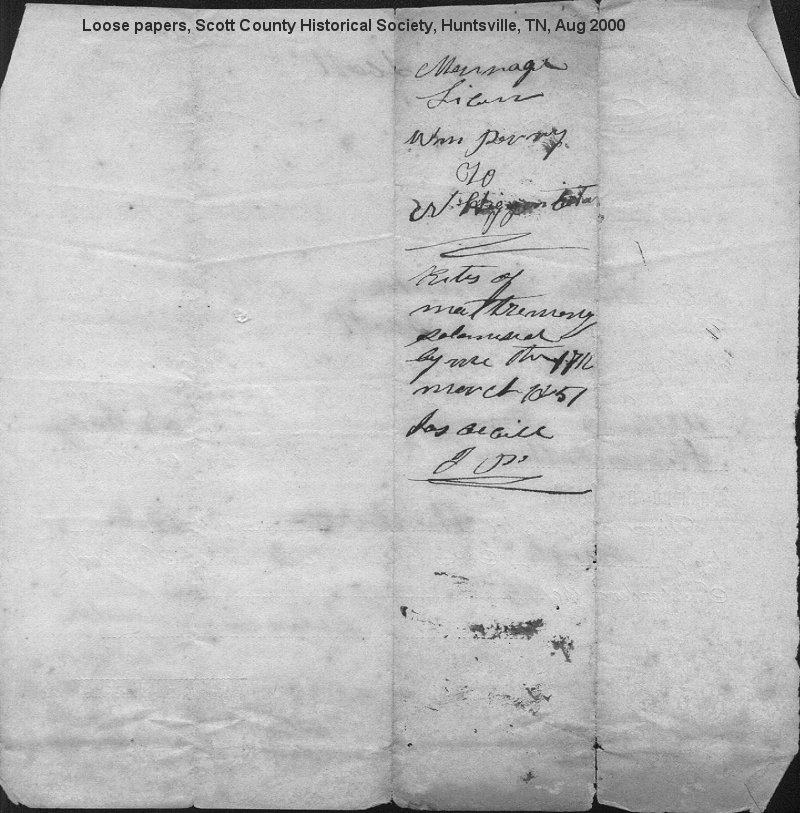 Loose papers, Scott County Historical Society, Huntsville, TN, Aug 2000
Marriage
Licen
Wm Perry
To
Rites of
matremony
solemnised
by me the 17th
march 1851
Jas
J P